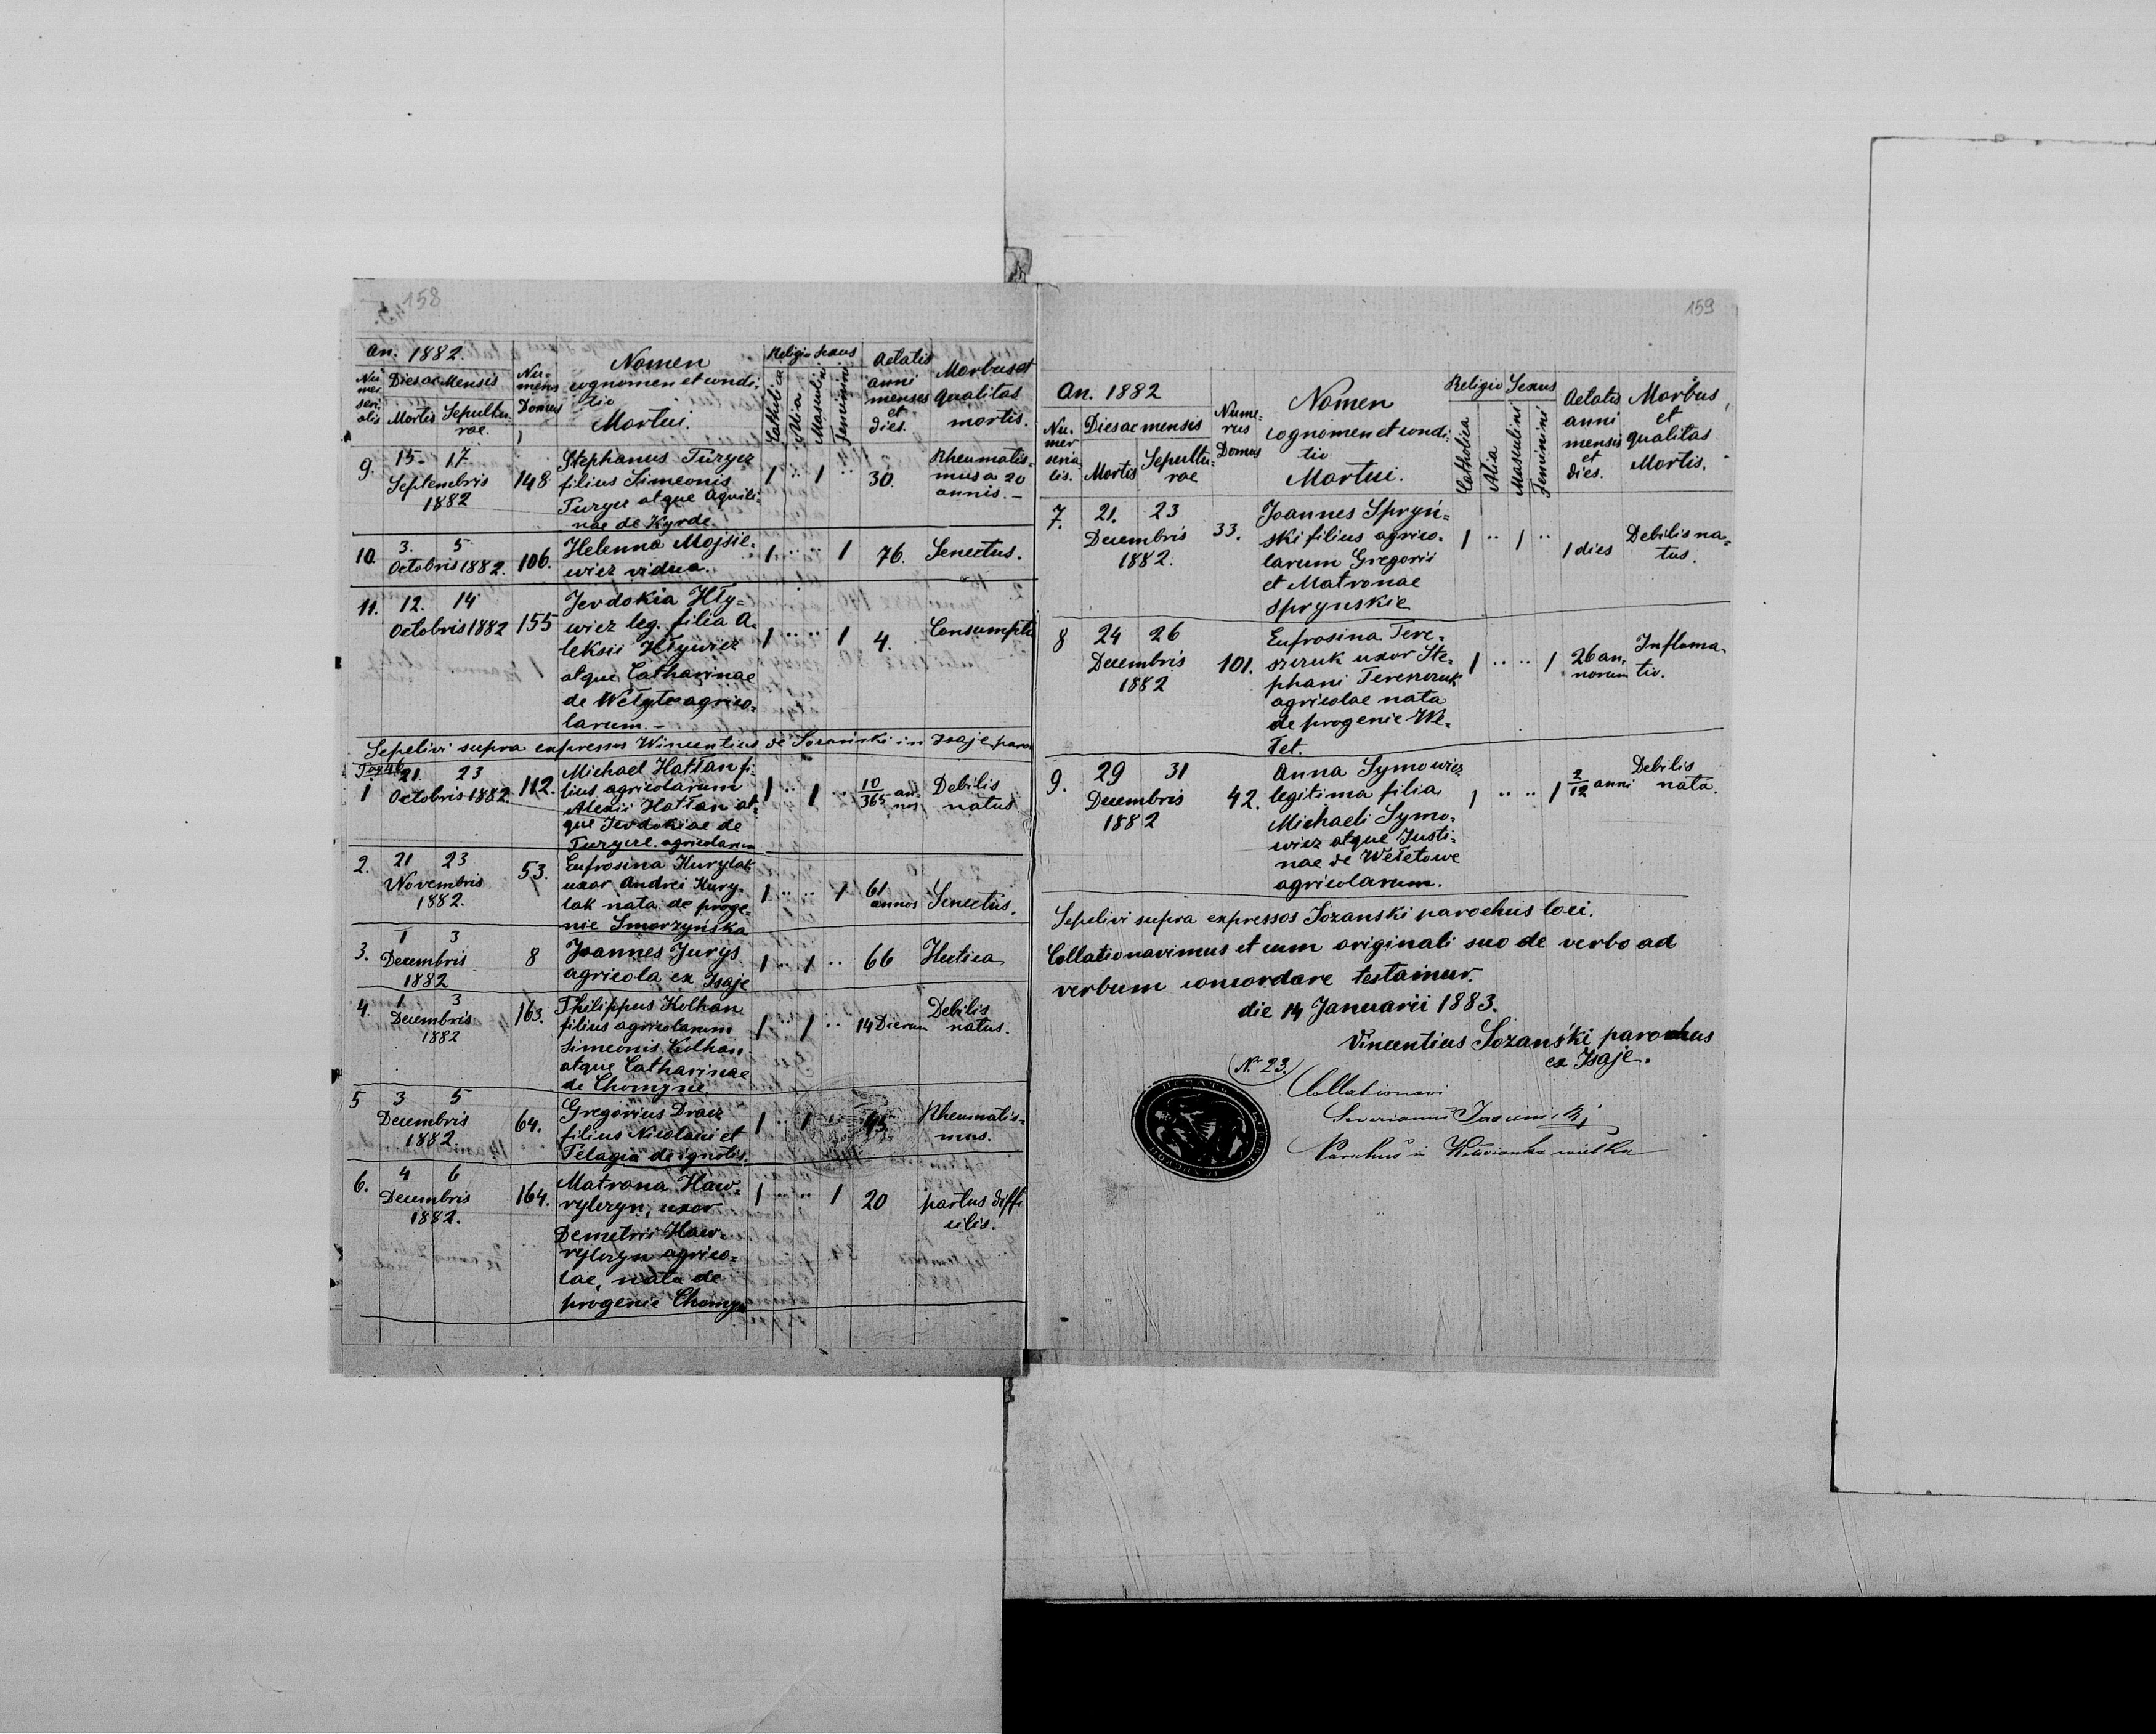 158
An. 1882.
Numer serialis
Dies ac Mensis
Mortis Sepulturae.
Numerus Domus
Nomen
cognomen et condi-
tio
Mortui.
Religio Sexus
Catholica
Alia
Masculini
Feminini
Aetatis
anni
menses
et
dies.
Morbus et
qualitas
mortis.
9. 15. 17
Septembris
1882
148
Stephanus Turycz
filius Simeonis
Turycz atque Aquili-
nae de Kyrde.
1 .. 1 ..
30.
Rheumatis=
mus a 20
annis.-
10. 3. 5
Octobris 1882.
106.
Helenna Mojsie-
wicz vidua.
1 .. .. 1
76.
Senectus.
11. 12. 14
Octobris 1882
155
Jevdokia Hły=
wicz leg. filia A-
leksii Hływicz
atque Catharinae
de Wełyte agrico-
larum.-
1 .. .. 1
4.
Consumpta
Sepelivi supra expressos Wincentius de Sozański in Isaje paro
1 21. 23
Octobris 1882.
112.
Michael Hattan fi-
lius agricolarum
Alexii Hattan at-
que Jevdokiae de
Turycze agricolarum
1 .. 1 ..
10/365 an-
nos
Debilis
natus
2. 21 23
Novembris
1882.
53.
Eufrosina Kurylak
uxor Andrei Kury-
lak nata de proge-
nie Smorzyńska
1 .. .. 1
61
annos
Senectus.
3. 1 3
Decembris
1882
8
Joannes Jurys
agricola ex Isaje
1 .. 1 ..
66
Hectica
4. 1 3
Decembris
1882
163.
Philippus Kolhan
filius agricolarum
Simeonis Kolhan
atque Catharinae
de Chomyne
1 .. 1 ..
14 Dierum
Debilis
natus.
5 3 5
Decembris
1882.
64.
Gregorius Dracz
filius Nicolaui et
Pelagia de ignotis.
1 .. 1 ..
45
Rheumatis-
mus.
6. 4 6
Decembris
1882.
164.
Matrona Haw-
ryłczyn, uxor
Demetrii Haw-
ryłczyn agrico-
lae, nata de
progenie Chomyn
1 .. .. 1
20
partus diffi
cilis.
159
An. 1882
Nu-
mer
seria-
lis.
Dies ac mensis
Mortis Sepultu-
rae
Nume-
rus
Domus
Nomen
cognomen et condi-
tio
Mortui.
Religio Sexus
Catholica
Alia
Masculini
Feminini
Aetatis
anni
mensis
et
dies.
Morbus
et
qualitas
Mortis.
7. 21. 23
Decembris
1882.
33.
Joannes Spryń=
ski filius agrico-
larum Gregorii
et Matronae
Sprynskie
1 .. 1 ..
1 dies
Debilis na=
tus.
8 24 26
Decembris
1882
101.
Eufrosina Tere-
szczuk uxor Ste-
phani Tereszczuk
agricolae nata
de progenie We-
łet.
1 .. .. 1
26 an-
norum
Inflama-
tio.
9. 29 31
Decembris
1882
42.
Anna Symowicz
legitima filia
Michaeli Symo-
wicz atque Justi-
nae de Wełetowe
agricolarum.
1 .. .. 1
2/12 anni
Debilis
nata.
Sepelivi supra expressos Sozanski parochus loci.
Collationavimus et cum originali suo de verbo ad
verbum concordare testamur.
die 14 Januarii 1883.
Vincentius Sozański parochus
ex Isaje.
N. 23.
Collationavi
Parochus in